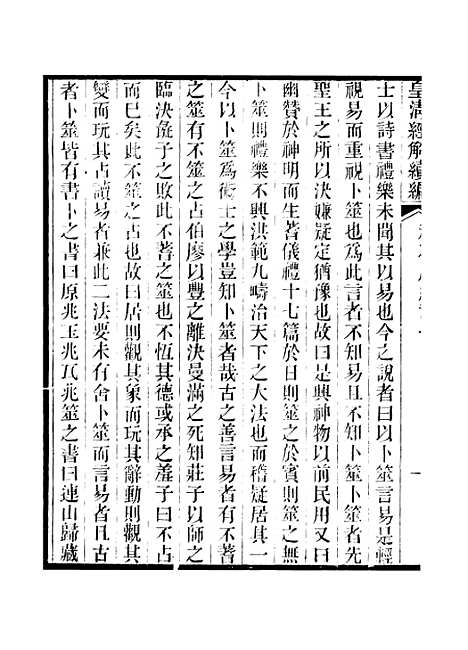 皇清經解續編
士以詩書禮樂未聞其以易也今之說者曰以卜筮言易是輕
視易而重視卜筮也爲此言者不知易且不知卜筮卜筮者先
聖王之所以決嫌疑定猶豫也故曰是興神物以前民用又曰
幽贊於神明而生蓍儀禮十七篇於日則筮之於賓則筮之無
卜筮則禮樂不興洪範九疇治天下之大法也而稽疑居其一
今以卜筮爲術士之學豈知卜筮者哉古之善言易者有不蓍
之筮有不筮之占伯廖以豐之離決曼滿之死知莊子以師之
臨決彘子之敗此不蓍之筮也不恆其德或承之羞子曰不占
而巳矣此不筮之占也故曰居則觀其象而玩其辭動則觀其
變而玩其占讀易者兼此二法要未有舍卜筮而言易者且古
者卜筮皆有書卜之書曰原兆玉兆瓦兆筮之書曰連山歸藏